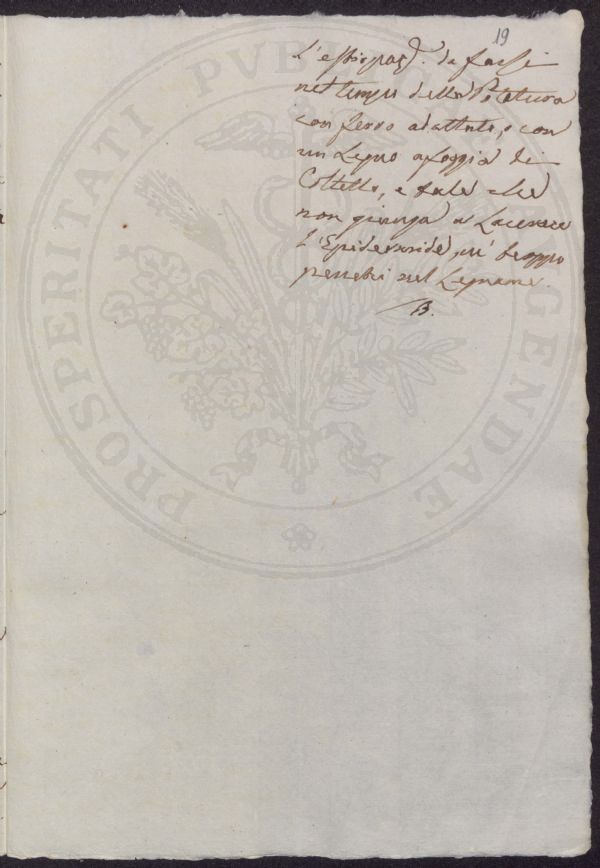 19
L'estirpaz.e da farsi
nel tempo della Potatura
con ferro adattato, o con
un Legno a foggia di
Coltello, e tale che
non giunga a Lacerare
l'Epidermide, nè troppo
penetri nel Legname.
B.
PROSPERITATI PUBLICAE AUGENDAE